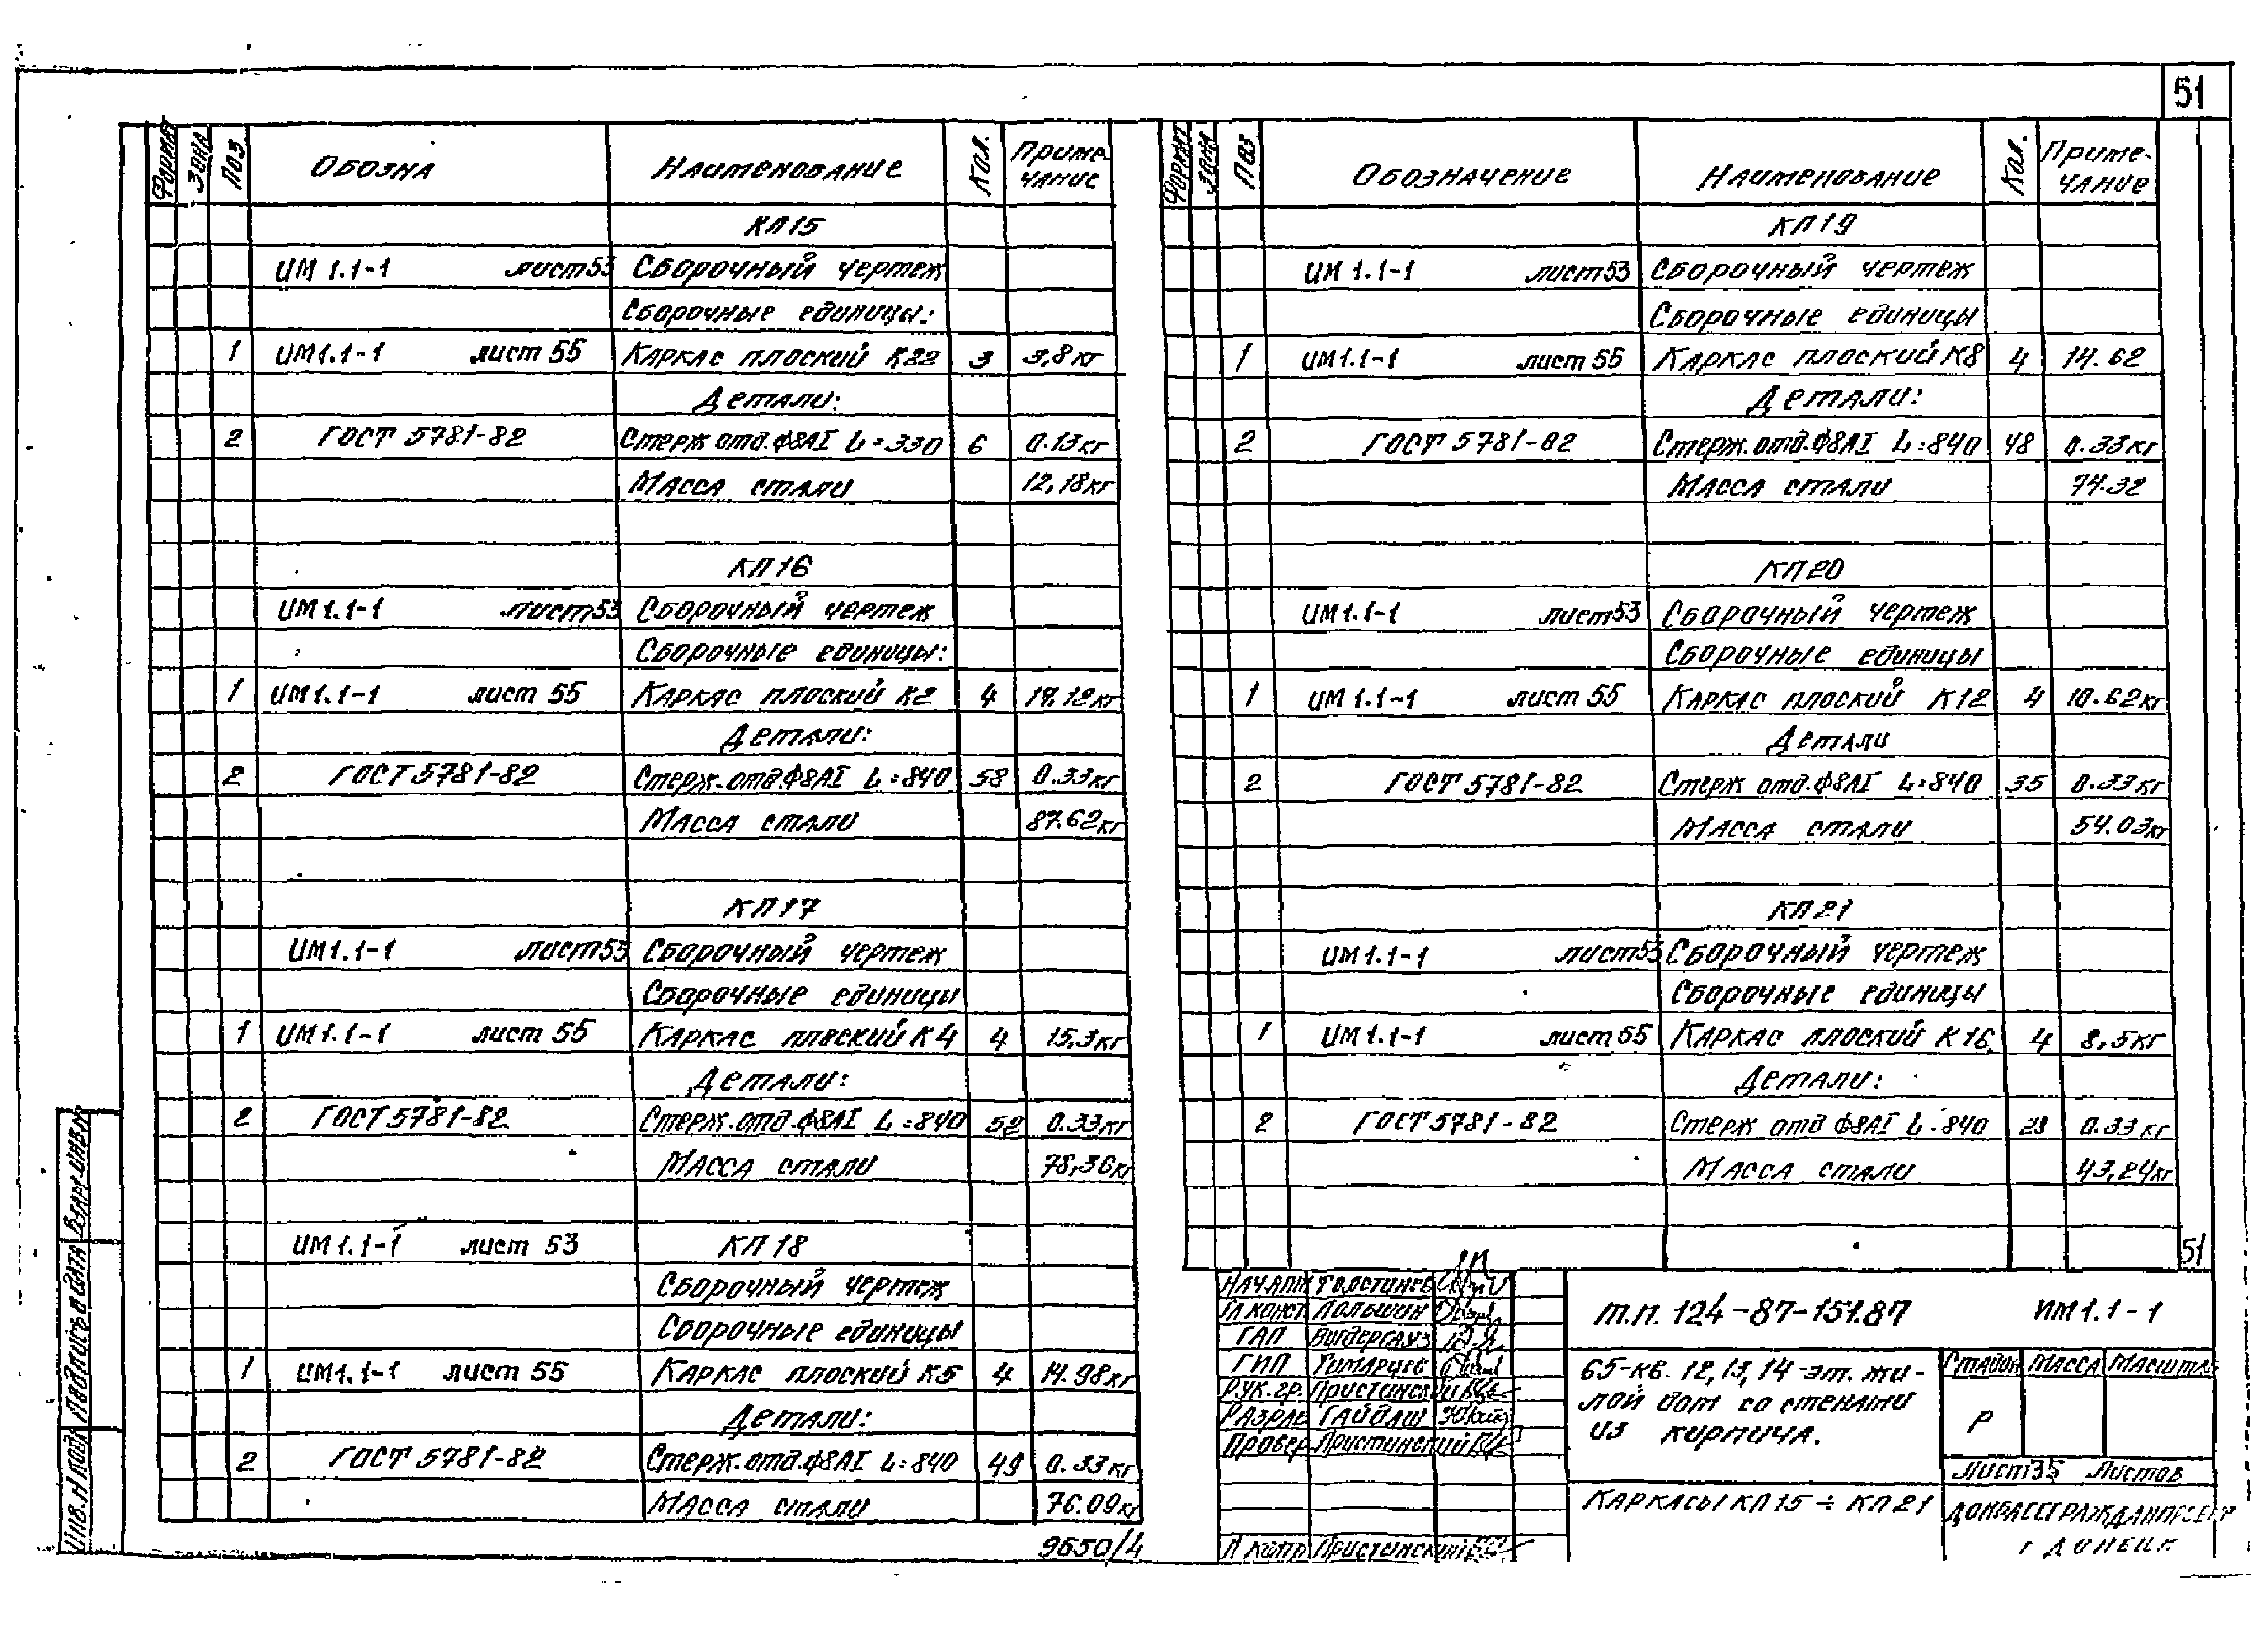 51
ФОРМАТ ЗОНА ПОЗ ОБОЗНА НАИМЕНОВАНИЕ КОЛ. ПРИМЕ-ЧАНИЕ
КП15
ИМ 1.1-1 лист 53 СБОРОЧНЫЙ чертеж
СБОРОЧНЫЕ единицы:
1 ИМ 1.1-1 лист 55 КАРКАС плоский К22 3 3,8кг
Детали:
2 ГОСТ 5781-82 Стерж отд. ф8АI L=330 6 0.13кг
МАССА стали 12,18кг
КП16
ИМ 1.1-1 лист 53 СБОРОЧНЫЙ чертеж
СБОРОЧНЫЕ единицы:
1 ИМ 1.1-1 лист 55 КАРКАС плоский К2 4 17,12кг
Детали:
2 ГОСТ 5781-82 Стерж. отд. ф8АI L=840 58 0.33кг
МАССА стали 87.62кг
КП17
ИМ 1.1-1 лист 53 СБОРОЧНЫЙ чертеж
СБОРОЧНЫЕ единицы
1 ИМ 1.1-1 лист 55 КАРКАС плоский К4 4 15,3кг
Детали:
2 ГОСТ 5781-82 Стерж. отд. ф8АI L=840 52 0.33кг
МАССА стали 78,36кг
ИМ 1.1-1 лист 53 КП18
СБОРОЧНЫЙ чертеж
СБОРОЧНЫЕ единицы
1 ИМ 1.1-1 лист 55 КАРКАС плоский К5 4 14.98кг
Детали:
2 ГОСТ 5781-82 Стерж. отд. ф8АI L=840 49 0.33кг
МАССА стали 76.09кг
9650/4
ФОРМАТ ЗОНА ПОЗ ОБОЗНАЧЕНИЕ НАИМЕНОВАНИЕ КОЛ. ПРИМЕ-ЧАНИЕ
КП19
ИМ 1.1-1 лист 53 СБОРОЧНЫЙ чертеж
СБОРОЧНЫЕ единицы
1 ИМ 1.1-1 лист 55 КАРКАС плоский К8 4 14.62
Детали:
2 ГОСТ 5781-82 Стерж. отд. ф8АI L=840 48 0.33кг
МАССА стали 74.32
КП20
ИМ 1.1-1 лист 53 СБОРОЧНЫЙ чертеж
СБОРОЧНЫЕ единицы
1 ИМ 1.1-1 лист 55 КАРКАС плоский К12 4 10.62кг
Детали
2 ГОСТ 5781-82 Стерж отд. ф8АI L=840 35 0.33кг
МАССА стали 54.03кг
КП21
ИМ 1.1-1 лист 53 СБОРОЧНЫЙ чертеж
СБОРОЧНЫЕ единицы
1 ИМ 1.1-1 лист 55 КАРКАС плоский К16 4 8,5кг
Детали:
2 ГОСТ 5781-82 Стерж отд ф8АI L=840 28 0.33кг
МАССА стали 43,24кг
51
НАЧ.АПМ Толстинев
Гл конст. Лольшин
ГАП
ГИП
Рук. гр. Пристинский
Разраб ГАЙДАШ
Провер Пристинский
Н контр Пристинский
т.п. 124-87-151.87 ИМ 1.1-1
65-кв. 12,13,14-эт. жи-
лой дом со стенами
из кирпича.
Стадия МАССА Масштаб
Р
Лист 35 Листов
КАРКАСЫ КП15 ÷ КП21
ДОНБАССГРАЖДАНПРОЕКТ
г ДОНЕЦК
Взам. инв. N
Подпись и дата
Инв. N подл